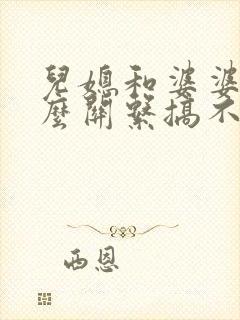 兒媳和婆婆
麼關繫搞不
西恩